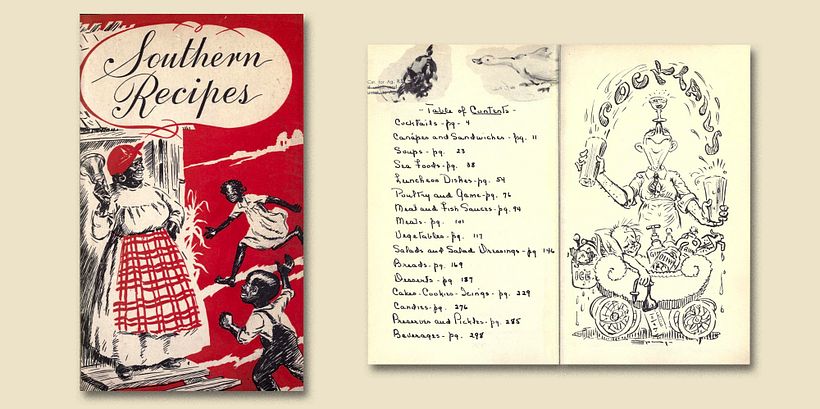 Southern
Recipes
Cat. for Ag.
- Table of Contents -
Cocktails - pg - 4
Canapes and Sandwiches - pg. 11
Soups - pg. 23
Sea Foods - pg. 38
Luncheon Dishes - pg. 54
Poultry and Game - pg. 76
Meat and Fish Sauces - pg. 94
Meats - pg. 101
Vegetables - pg. 117
Salads and Salad Dressings - pg 146
Breads - pg. 169
Desserts - pg. 187
Cakes - Cookies - Icings - pg. 229
Candies - pg. 276
Preserves and Pickles - pg. 285
Beverages - pg. 298
COCKTAILS
ICE